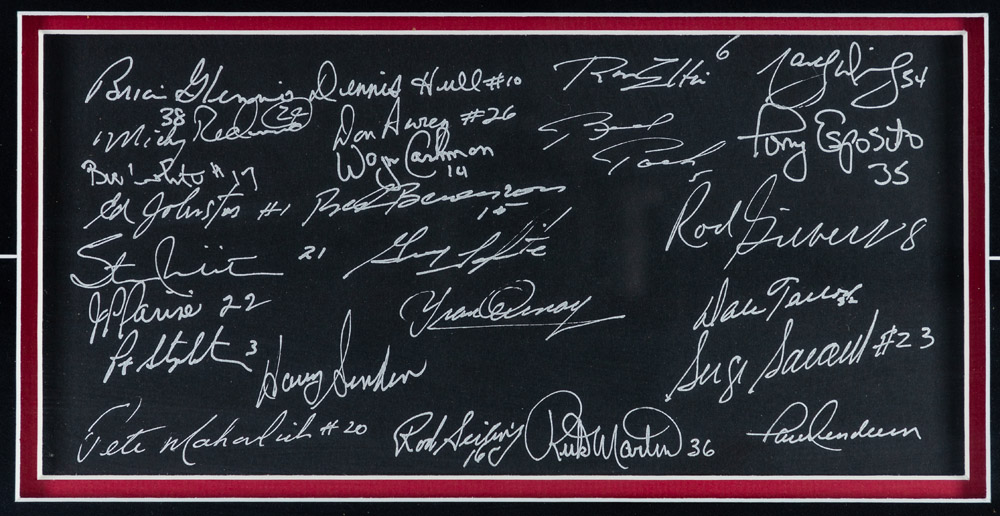 Brian Glennie 38
Dennis Hull #10
Ron Ellis 6
34
Micky Redmond 24
Don Awrey #26
Brad Park 5
Tony Esposito 35
Bill White #17
Wayne Cashman 14
Ed Johnston #1
Red Berenson 15
Rod Gilbert 8
Stan Mikita 21
Guy Lapointe
JP Parise 22
Yvan Cournoyer
Dale Tallon 32
Pat Stapleton 3
Harry Sinden
Serge Savard #23
Pete Mahovlich #20
Rod Seiling 16
Rick Martin 36
Paul Henderson